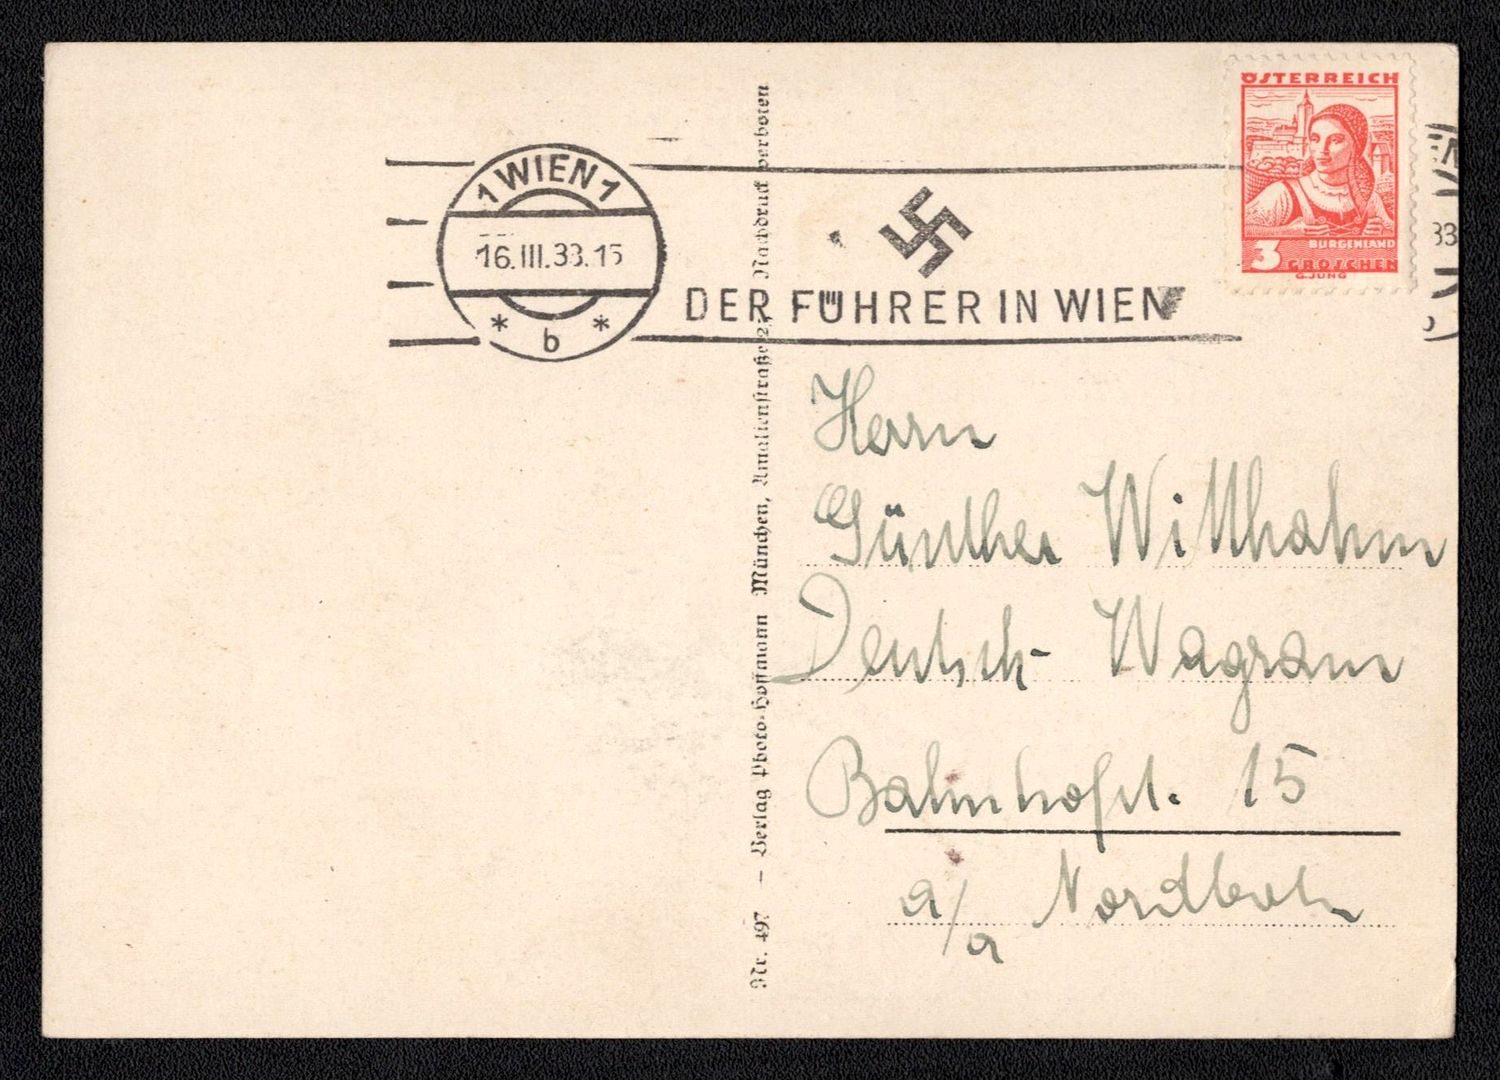 ÖSTERREICH
BURGENLAND
3 GROSCHEN
G.JUNG
1 WIEN 1
16.III.38.15
* b *
DER FÜHRER IN WIEN
Nr. 497 – Verlag Photo-Hoffmann München, Amalienstraße 25 Nachdruck verboten
Herrn
Günther Witthahm
Deutsch-Wagram
Bahnhofst. 15
a/a Nordbah